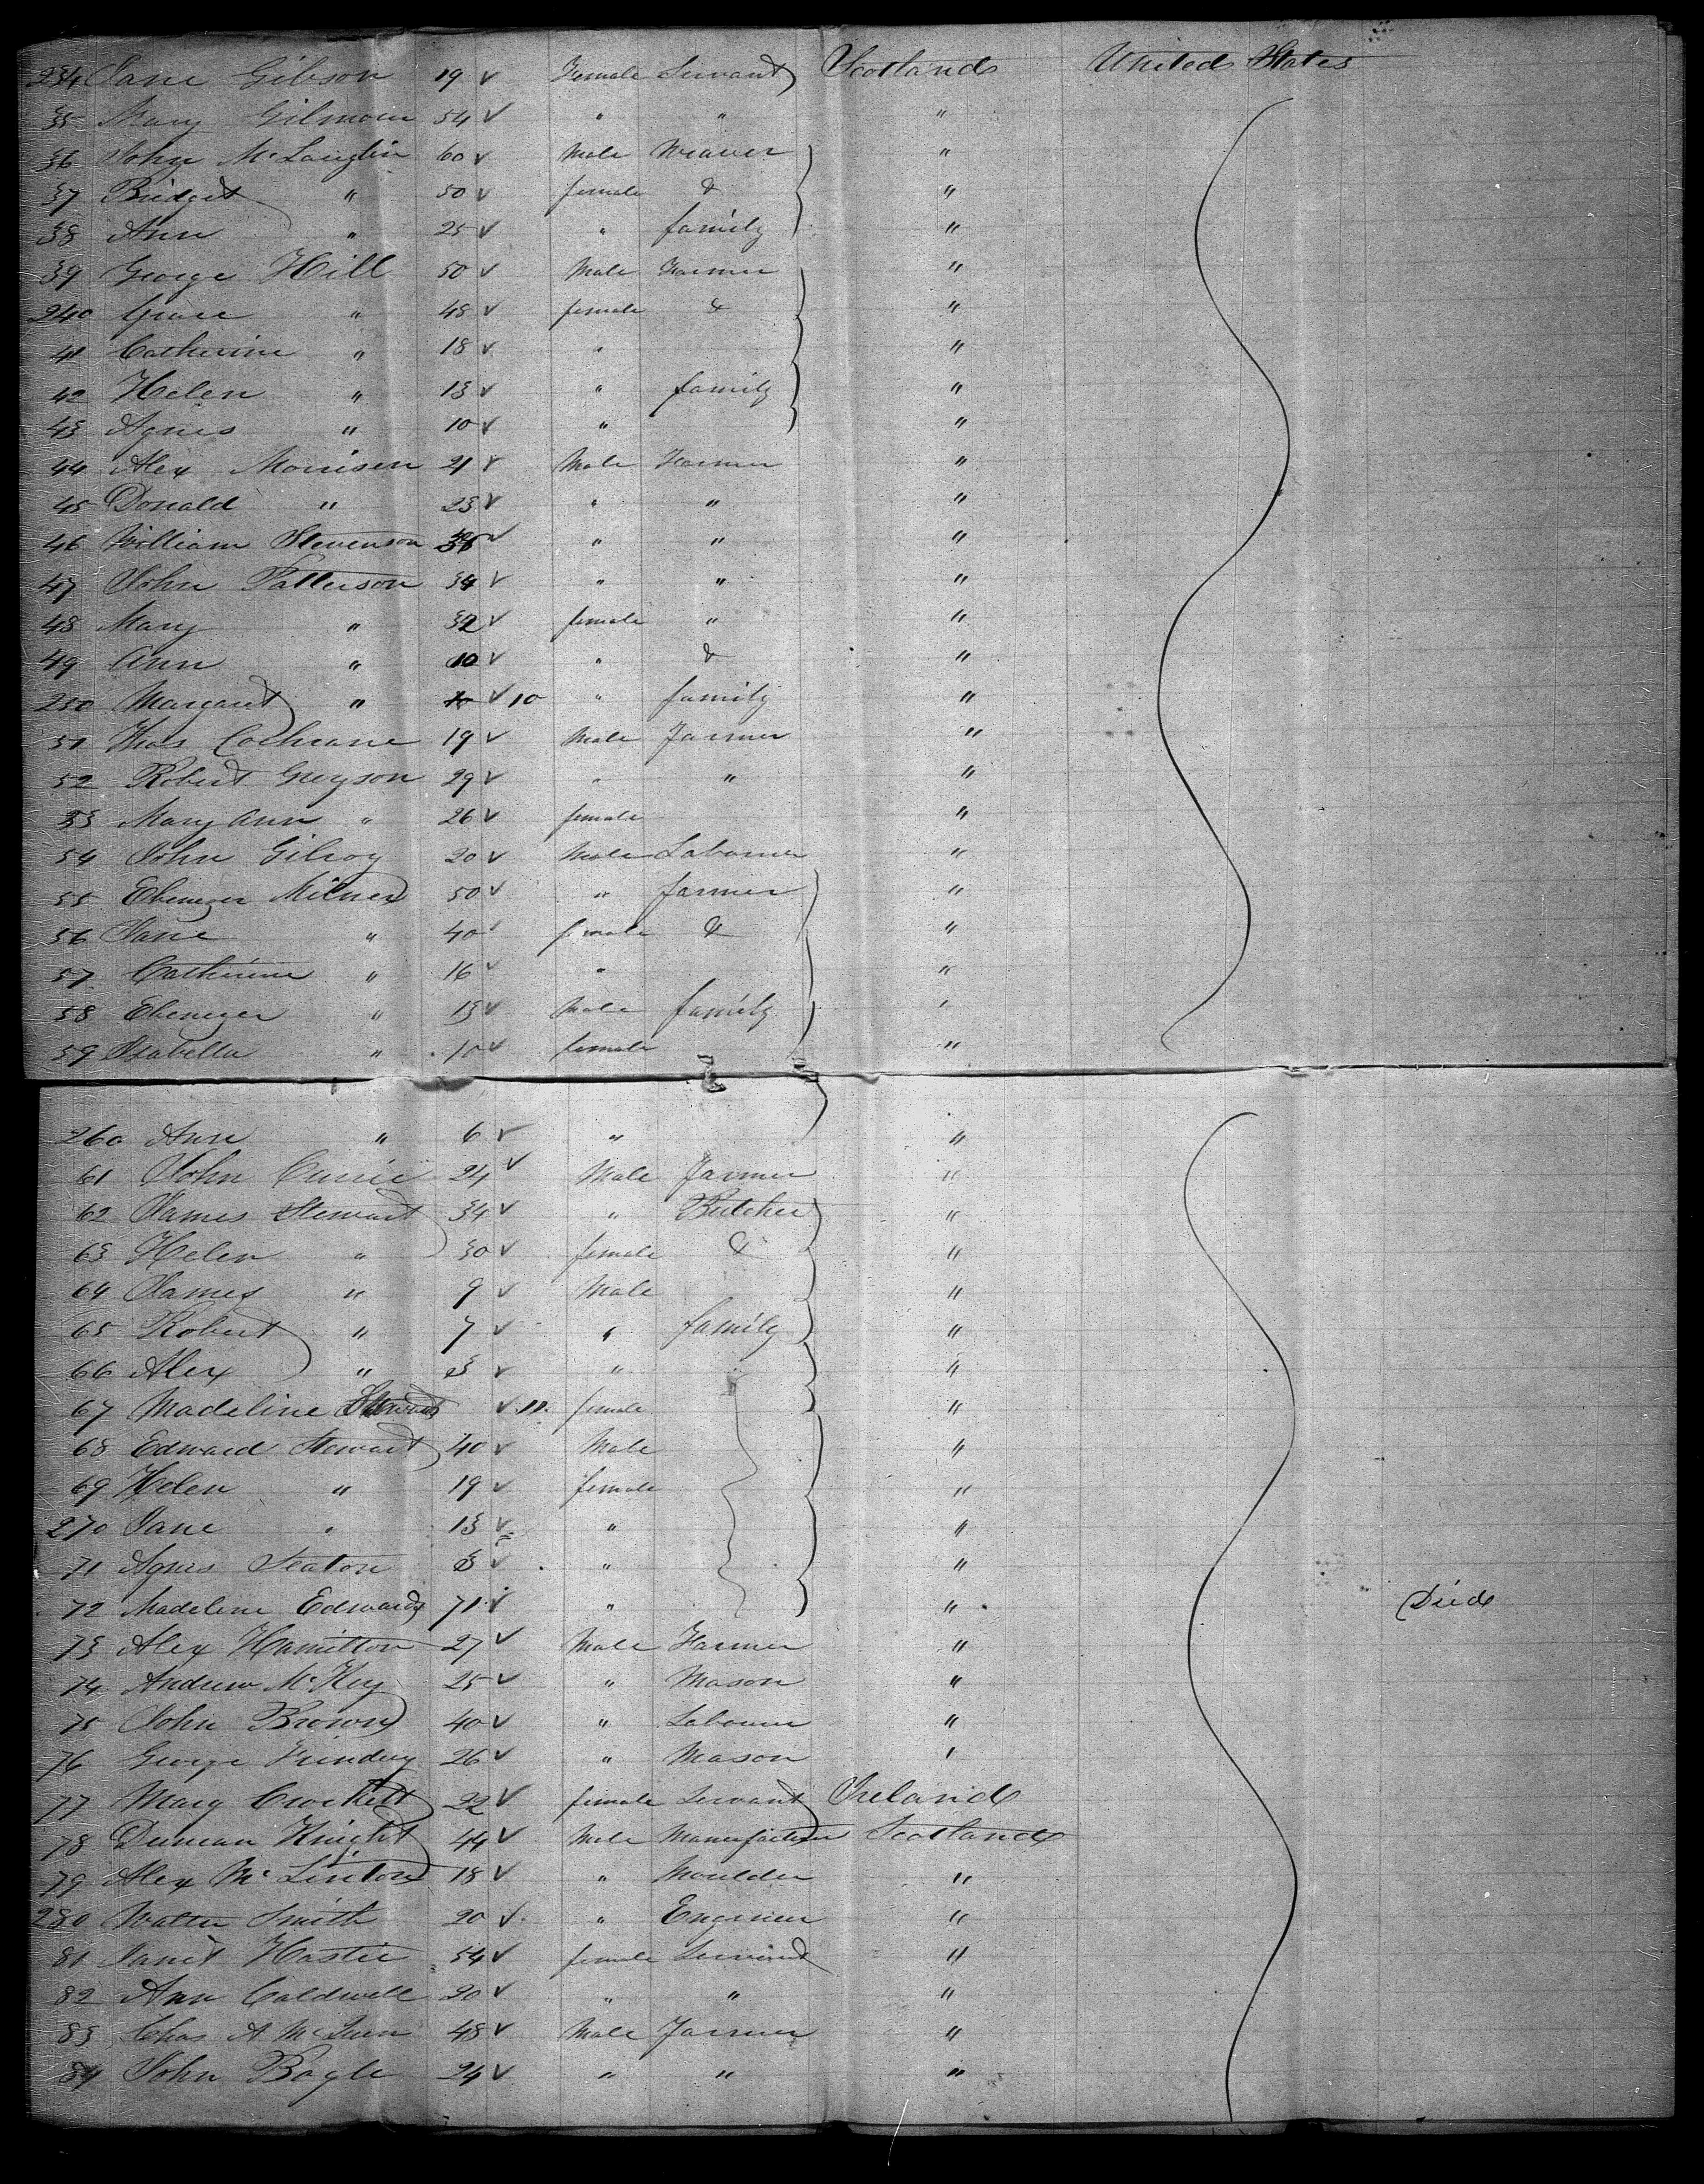 234 Jane Gibson 19 ✓ Female Servant Scotland United States
35 Mary Gilmour 54 ✓ " " "
36 John McLauglin 60 ✓ Male Weaver "
37 Bridget " 50 ✓ female & "
38 Ann " 25 ✓ " family "
39 George Hill 50 ✓ Male Farmer "
240 Grace " 48 ✓ female & "
41 Catherine " 18 ✓ " "
42 Helen " 13 ✓ " family "
43 Agnes " 10 ✓ " "
44 Alex Morrison 21 ✓ Male Farmer "
45 Donald " 23 ✓ " " "
46 William Stevenson ✓ " " "
47 John Patterson 34 ✓ " " "
48 Mary " 32 ✓ female " "
49 Ann " 10 ✓ " & "
250 Margaret " ✓ 10 " family "
51 Thos Cochrane 19 ✓ Male Farmer "
52 Robert Greyson 29 ✓ " " "
53 Mary Ann " 26 ✓ female "
54 John Gilroy 20 ✓ Male Labourer "
55 Ebenezer Milner 50 ✓ " farmer "
56 Jane " 40 ✓ female & "
57 Catherine " 16 ✓ " "
58 Ebenezer " 13 ✓ Male family "
59 Isabella " 10 ✓ female "
260 Ann " 6 ✓ " "
61 John Currie 24 ✓ Male Farmer "
62 James Stewart 34 ✓ " Butcher "
63 Helen " 30 ✓ female & "
64 James " 9 ✓ Male "
65 Robert " 7 ✓ " family "
66 Alex " 3 ✓ " "
67 Madeline ✓ 11. female "
68 Edward Stewart 40 ✓ Male "
69 Helen " 19 ✓ female "
270 Jane " 13 ✓ " "
71 Agnes Seaton 3 ✓ " "
72 Madeline Edwards 71 ✓ " " Died
73 Alex Hamilton 27 ✓ Male Farmer "
74 Andrew McKey 25 ✓ " Mason "
75 John Brown 40 ✓ " Labourer "
76 George 26 ✓ " Mason "
77 Mary Crockett 22 ✓ female Servant Ireland
78 Duncan Knight 44 ✓ Male Manufacturer Scotland
79 Alex McLinton 18 ✓ " Moulder "
280 Walter Smith 20 ✓ " Engineer "
81 Janet Hastie 54 ✓ female Servant "
82 Ann Caldwell 20 ✓ " " "
83 Chas A 48 ✓ Male Farmer "
84 John Bogle 24 ✓ " " "